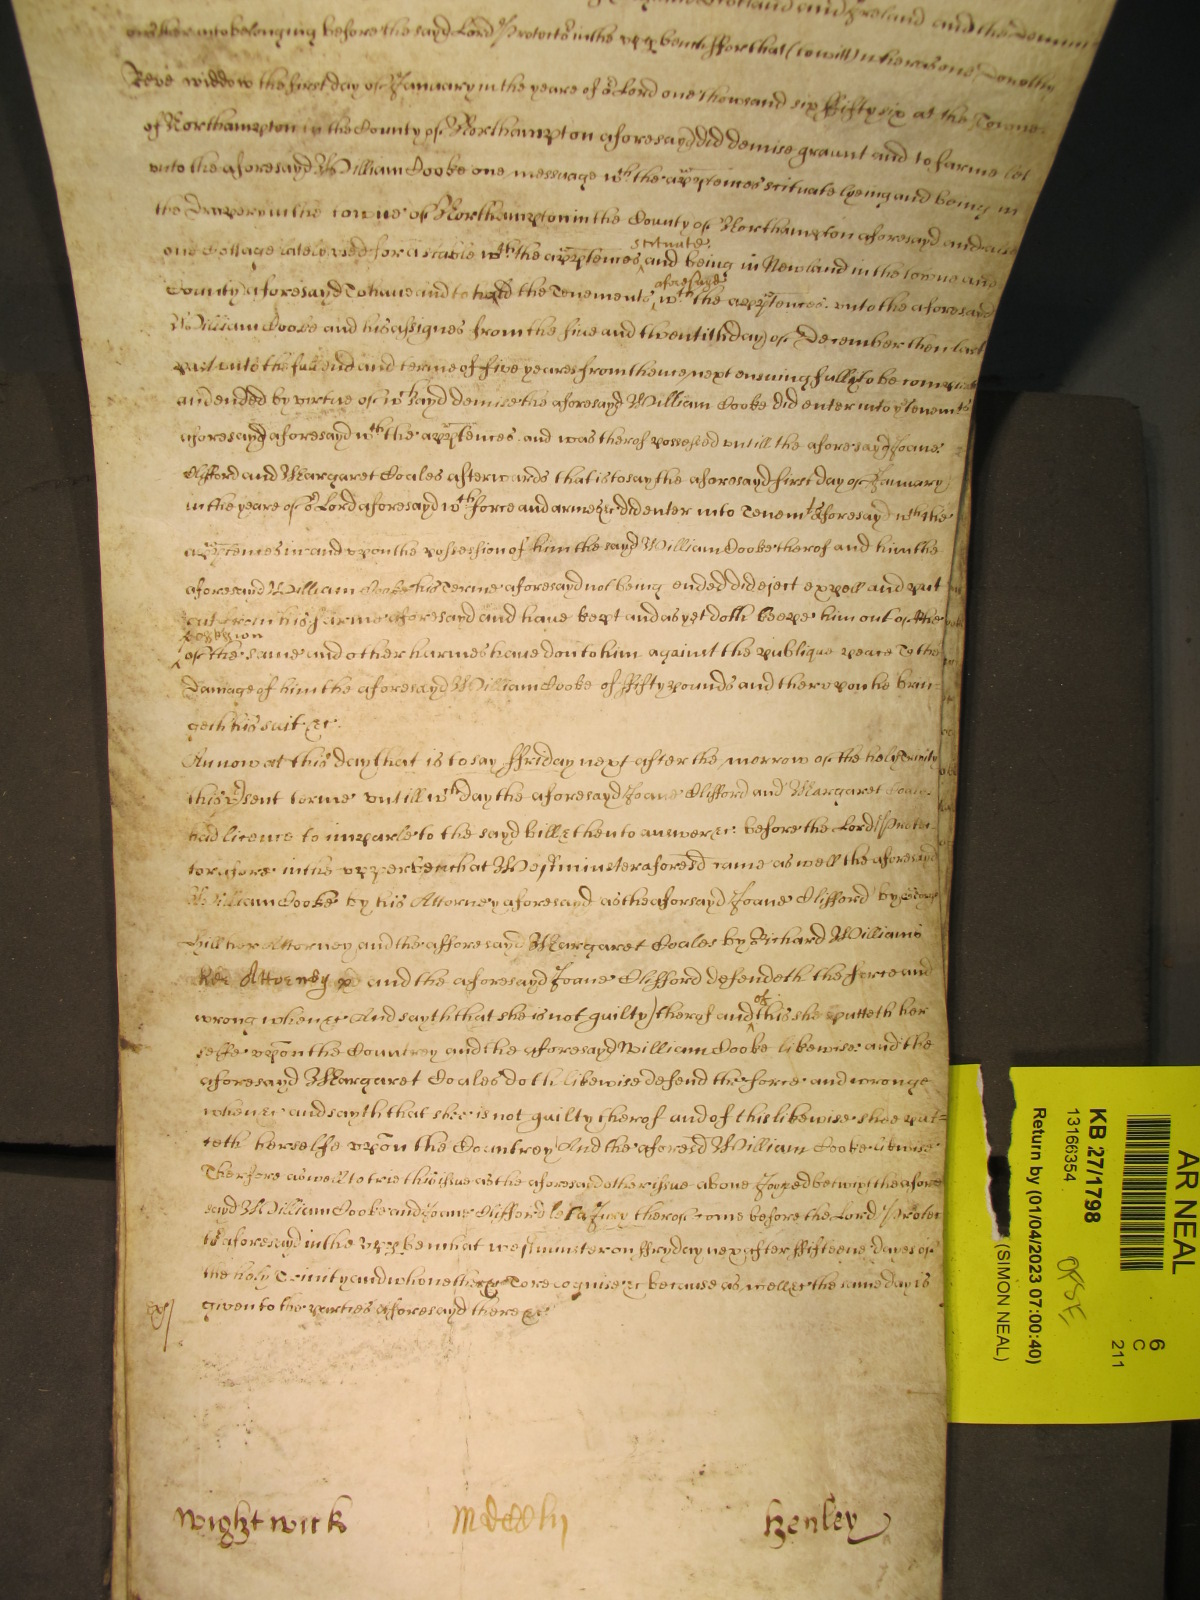 Scotland and Ireland and the Domini
ons thereunto belonging before the sayd Lord Protector in the upp bench ffor that (to witt) whereas one Dorothy
Reve widdow the first day of January in the yeare of or Lord one thousand six ffifty six at the Towne
of Northampton in the County of Northampton aforesayd did demise graunt and to farme let
unto the aforesayd William Cooke one messuage wth the apptences scituate lyeing and being in
the Drapery in the towne of Northampton in the County of Northampton aforesayd and alsoe
one Cottage lately used for a stable wth the apptences scituate and being in Newland in the towne and
County aforesayd To have and to hold the Tenements aforesayd wth the apptences unto the aforesayd
William Cooke and his assignes from the five and twentith day of December then last
past unto the full end and terme of five yeares from thence next ensuing fully to be compleat
and ended by virtue of wch sayd demise the aforesayd William Cooke did enter into ye tenemts
aforesayd aforesayd wth the apptences and was therof possessed untill the aforesayd Joane
Clifford and Margaret Coales afterwards that is to say the aforesayd first day of January
in the yeare of or Lord aforesayd wth force and armes &c did enter into Tenemts aforesayd wth the
apptences in and upon the possession of him the sayd William Cooke therof and him the
aforesayd William Cooke his Terme aforesayd not being ended did eject expell and put
out from his farme aforesayd and have kept and as yet doth keepe him out of the
possession
of the same and other harmes have don to him against the publique peace To the
Damage of him the aforesayd William Cooke of ffifty pounds and therupon he brin-
geth his suit &c.
An now at this day that is to say ffriday next after the morrow of the holy Trinity
this psent terme untill wch day the aforesayd Joane Clifford and Margaret Coales
had licence to imparle to the sayd bill & then to answer &c. before the Lord Protec-
tor afore in the upper bench at Westminster aforesd came as well the aforesayd
William Cooke by his Attorney aforesayd as the aforsayd Joane Clifford by George
Hill her Attorney and the afforesayd Margaret Coales by Richard Williams
her Attorney and the aforesayd Joane Clifford defendeth the force and
wrong when &c And sayth that she is not guilty therof and of this she putteth her
selfe upon the Countrey and the aforesayd William Cooke likewise and the
aforesayd Margaret Coales doth likewise defend the force and wronge
when &c and sayth that shee is not guilty therof and of this likewise shee put=
teth herselfe upon the Countrey And the aforesd William Cooke likewise
Therfore as well to trie this issue as the aforesayd other issue above Joyned betwixt the afore
sayd William Cooke and Joane Clifford let a Jury therof come before the Lord Protec
tor aforesayd in the upp bench at westminster on ffryday next after ffifteene dayes of
the holy Trinity and who neither &c To recognise &c because as well &c the same day is
given to the parties aforesayd there &c
Wightwick
Henley
AR NEAL
KB 27/1798
13166354
Return by (01/04/2023 07:00:40)
(SIMON NEAL)
6
C
211